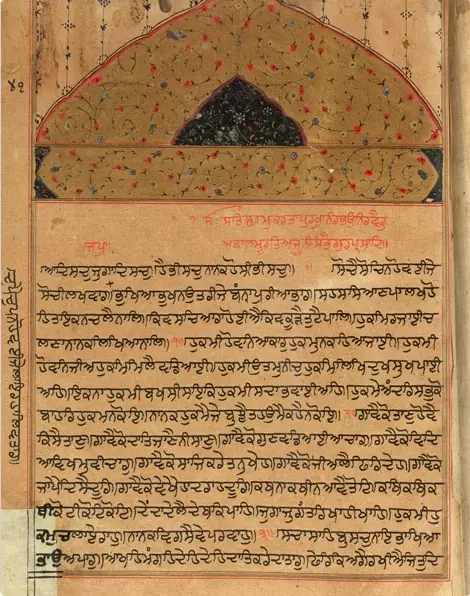 ੴ ਸਤਿਨਾਮੁਕਰਤਾਪੁਰਖੁਨਿਰਭਉਨਿਰਵੈਰੁ
ਅਕਾਲਮੂਰਤਿਅਜੂਨੀਸੈਭੰਗੁਰਪ੍ਰਸਾਦਿ॥
ਜਪੁ॥
ਆਦਿਸਚੁਜੁਗਾਦਿਸਚੁ॥ਹੈਭੀਸਚੁਨਾਨਕਹੋਸੀਭੀਸਚੁ॥ ॥ਸੋਚੈਸੋਚਿਨਹੋਵਈਜੇ
ਸੋਚੀਲਖਵਾਰ॥ਭੁਖਿਆਭੁਖਨਉਤਰੀਜੇਬੰਨਾਪੁਰੀਆਭਾਰ॥ਸਹਸਸਿਆਣਪਾਲਖਹੋ
ਹਿਤਇਕਨਚਲੈਨਾਲਿ॥ਕਿਵਸਚਿਆਰਾਹੋਈਐਕਿਵਕੂੜੈਤੁਟੈਪਾਲਿ॥ਹੁਕਮਿਰਜਾਈਚ
ਲਣਾਨਾਨਕਲਿਖਿਆਨਾਲਿ॥੧॥ਹੁਕਮੀਹੋਵਨਿਆਕਾਰਹੁਕਮੁਨਕਹਿਆਜਾਈ॥ਹੁਕਮੀ
ਹੋਵਨਿਜੀਅਹੁਕਮਿਮਿਲੈਵਡਿਆਈ॥ਹੁਕਮੀਉਤਮੁਨੀਚੁਹੁਕਮਿਲਿਖਿਦੁਖਸੁਖਪਾਈ
ਅਹਿ॥ਇਕਨਾਹੁਕਮੀਬਖਸੀਸਇਕਿਹੁਕਮੀਸਦਾਭਵਾਈਅਹਿ॥ਹੁਕਮੈਅੰਦਰਿਸਭੁਕੋ
ਬਾਹਰਿਹੁਕਮਨਕੋਇ॥ਨਾਨਕਹੁਕਮੈਜੇਬੁਝੈਤਹਉਮੈਕਹੈਨਕੋਇ॥੨॥ਗਾਵੈਕੋਤਾਣੁਹੋਵੈ
ਕਿਸੈਤਾਣੁ॥ਗਾਵੈਕੋਦਾਤਿਜਾਣੈਨੀਸਾਣੁ॥ਗਾਵੈਕੋਗੁਣਵਡਿਆਈਆਚਾਰ॥ਗਾਵੈਕੋਵਿਦਿ
ਆਵਿਖਮੁਵੀਚਾਰੁ॥ਗਾਵੈਕੋਸਾਜਿਕਰੇਤਨੁਖੇਹ॥ਗਾਵੈਕੋਜੀਅਲੈਫਿਰਿਦੇਹ॥ਗਾਵੈਕੋ
ਜਾਪੈਦਿਸੈਦੂਰਿ॥ਗਾਵੈਕੋਵੇਖੈਹਾਦਰਾਹਦੂਰਿ॥ਕਥਨਾਕਥੀਨਆਵੈਤੋਟਿ॥ਕਥਿਕਥਿਕ
ਥੀਕੋਟੀਕੋਟਿਕੋਟਿ॥ਦੇਂਦਾਦੇਲੈਦੇਥਕਿਪਾਹਿ॥ਜੁਗਾਜੁਗੰਤਰਿਖਾਹੀਖਾਹਿ॥ਹੁਕਮੀਹੁ
ਕਮੁਚਲਾਏਰਾਹੁ॥ਨਾਨਕਵਿਗਸੈਵੇਪਰਵਾਹੁ॥੩॥ਸਾਚਾਸਾਹਿਬੁਸਾਚੁਨਾਇਭਾਖਿਆ
ਭਾਉਅਪਾਰੁ॥ਆਖਹਿਮੰਗਹਿਦੇਹਿਦੇਹਿਦਾਤਿਕਰੇਦਾਤਾਰੁ॥ਫੇਰਿਕਿਅਗੈਰਖੀਐਜਿਤੁਦਿ
ਚੁਪੈਚੁਪਿਨਹੋਵਈਜੇਲਾਇਰਹਾਲਿਵਤਾਰ॥